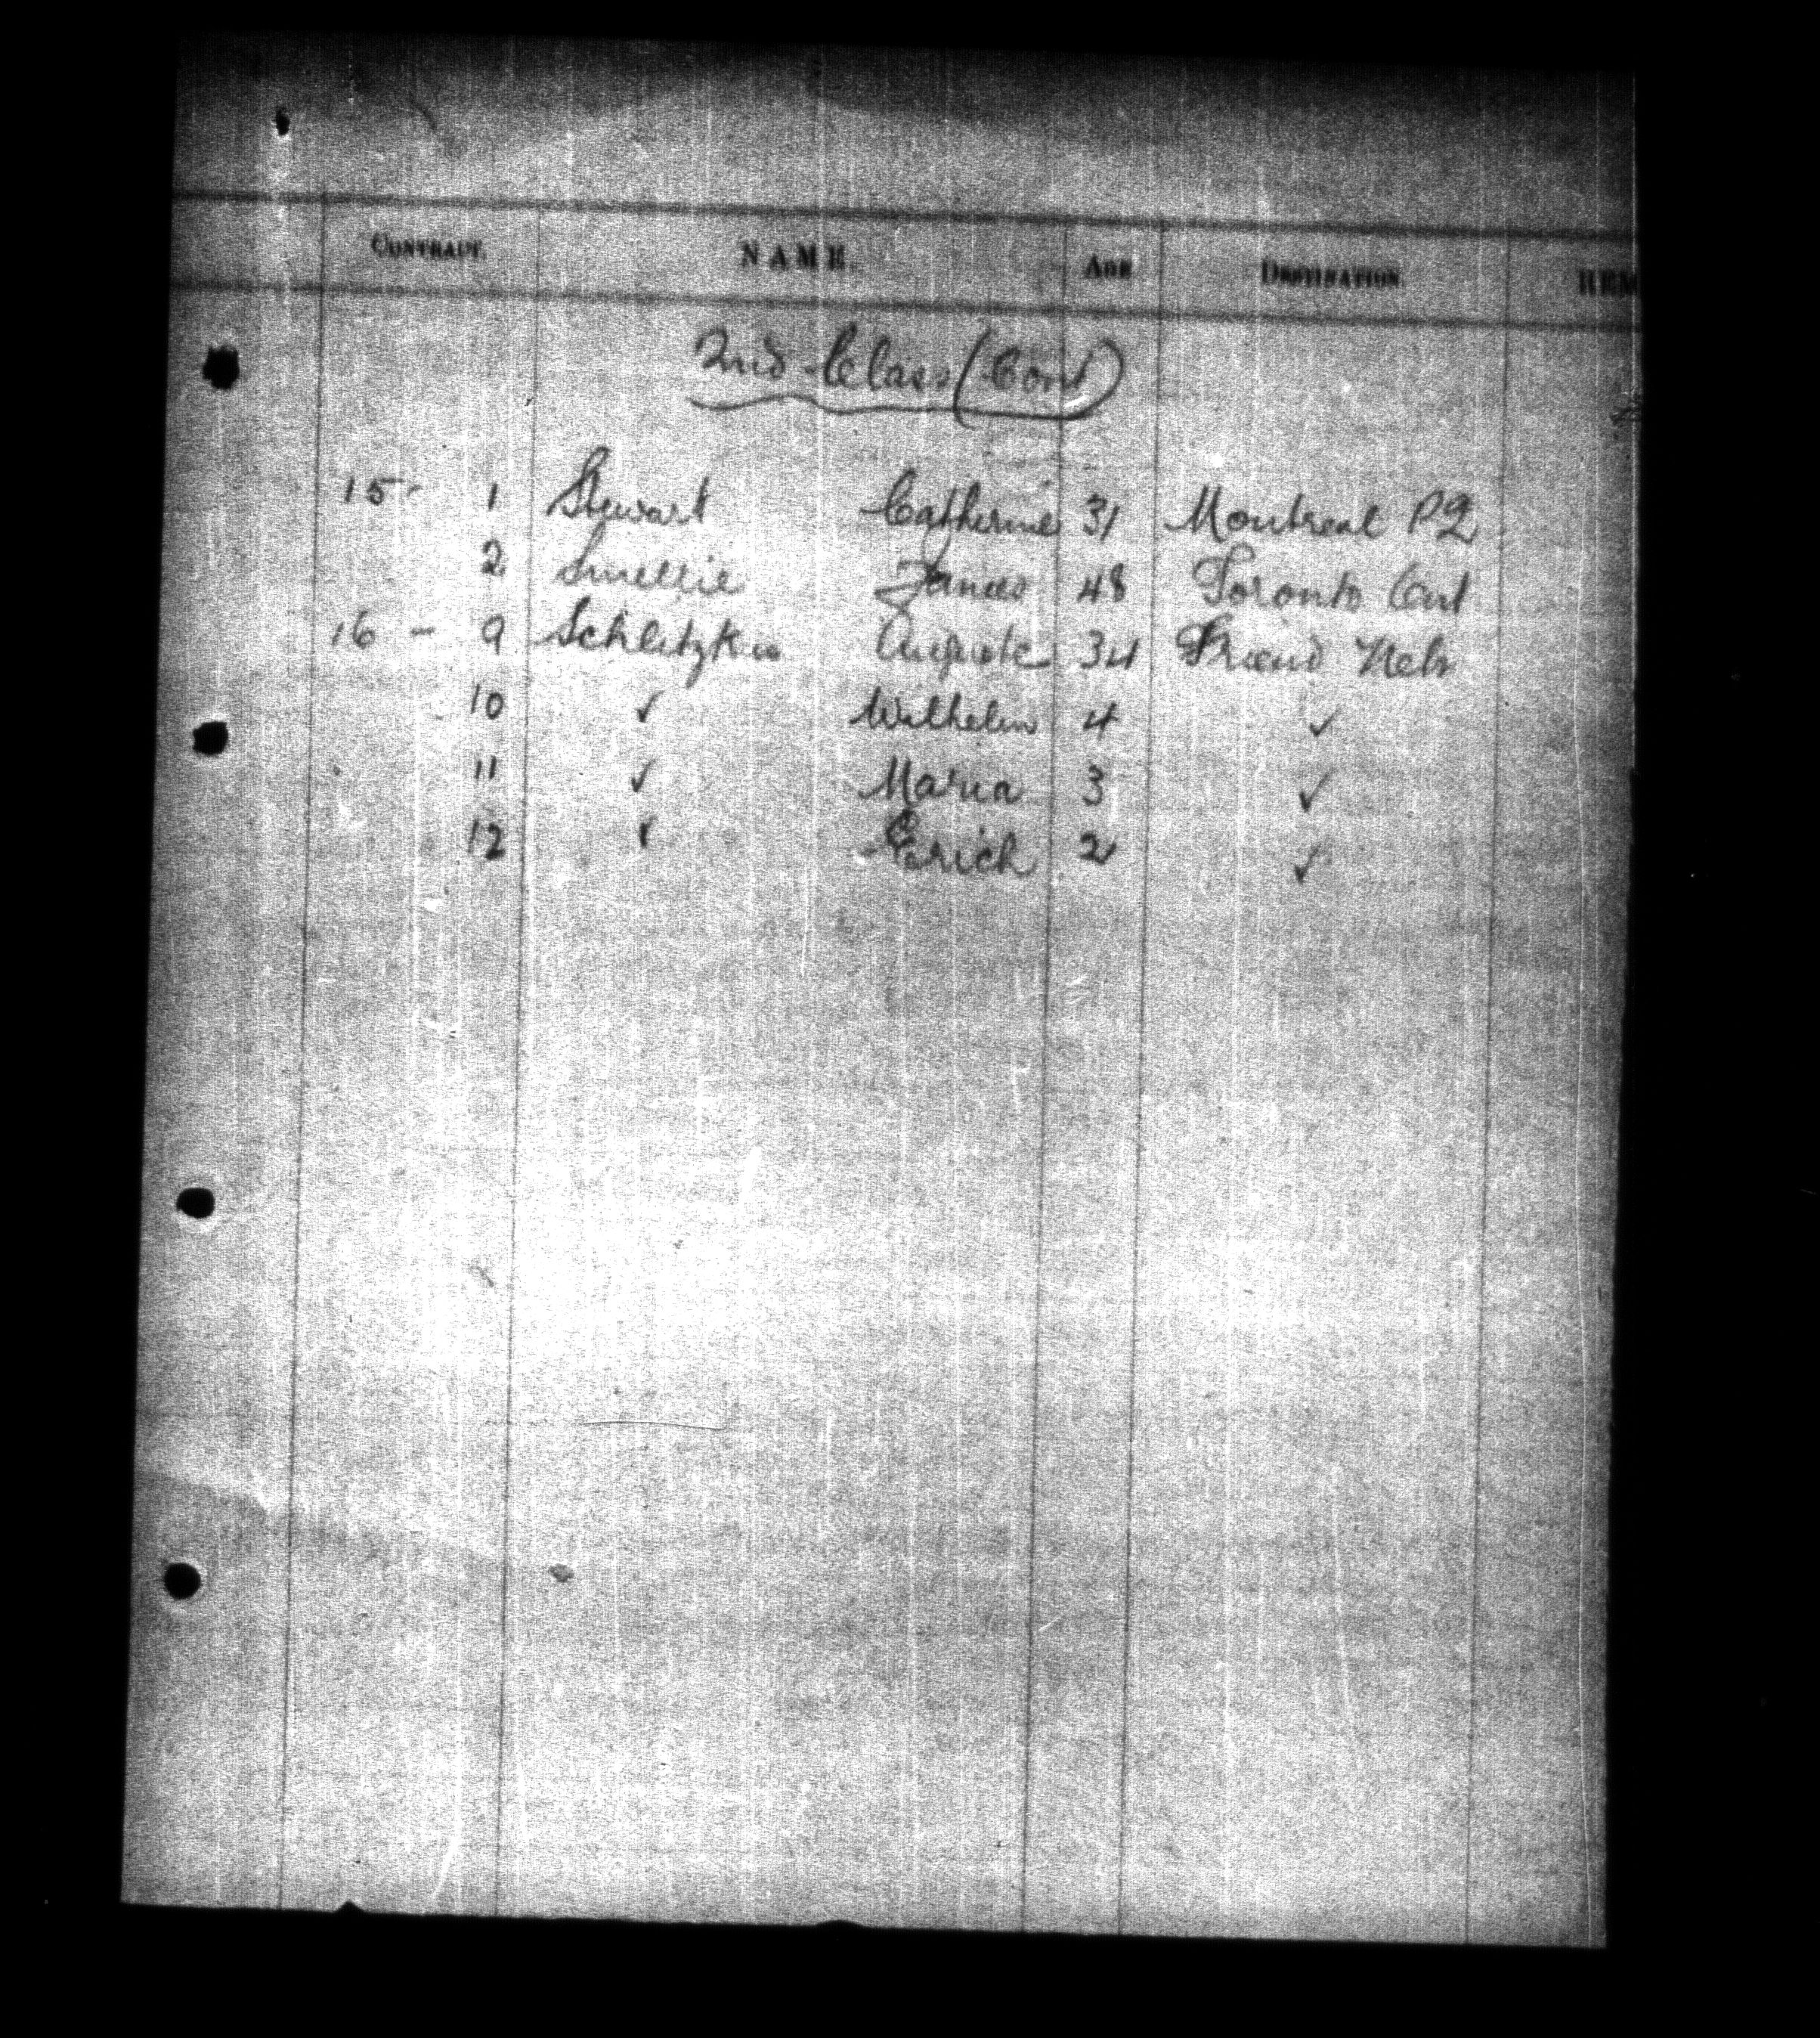 CONTRACT. NAME. AGE DESTINATION. REM
2nd Class (Cont)
15 - 1 Stewart Catherine 31 Montreal PQ
2 Smellie James 48 Toronto Ont
16 - 9 Auguste 34 Friend Nebr
10 ✓ Wilhelm 4 ✓
11 ✓ Maria 3 ✓
12 ✓ Erich 2 ✓